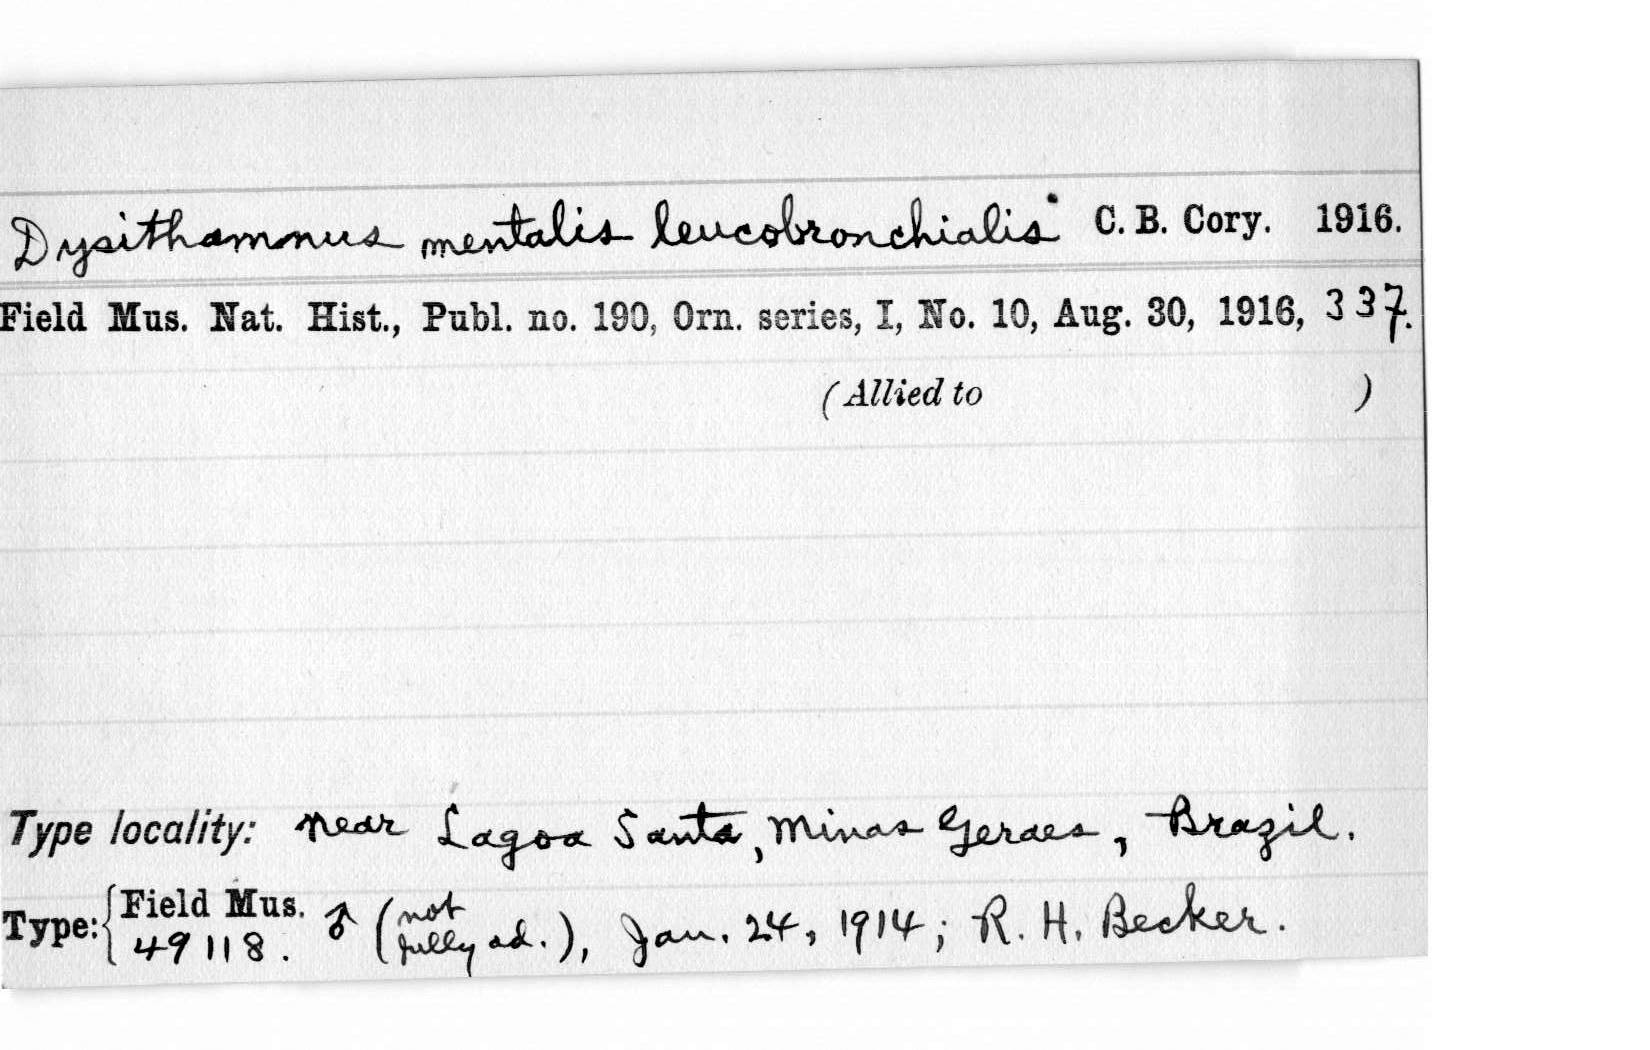 Dysithamnus mentalis leucobronchialis C. B. Cory. 1916.
Field Mus. Nat. Hist., Publ. no. 190, Orn. series, I, No. 10, Aug. 30, 1916, 337.
(Allied to )
Type locality: near Lagoa Santa, Minas Geraes, Brazil.
Type: { Field Mus. 49118. ♂ (not fully ad.), Jan. 24, 1914; R. H. Becker.